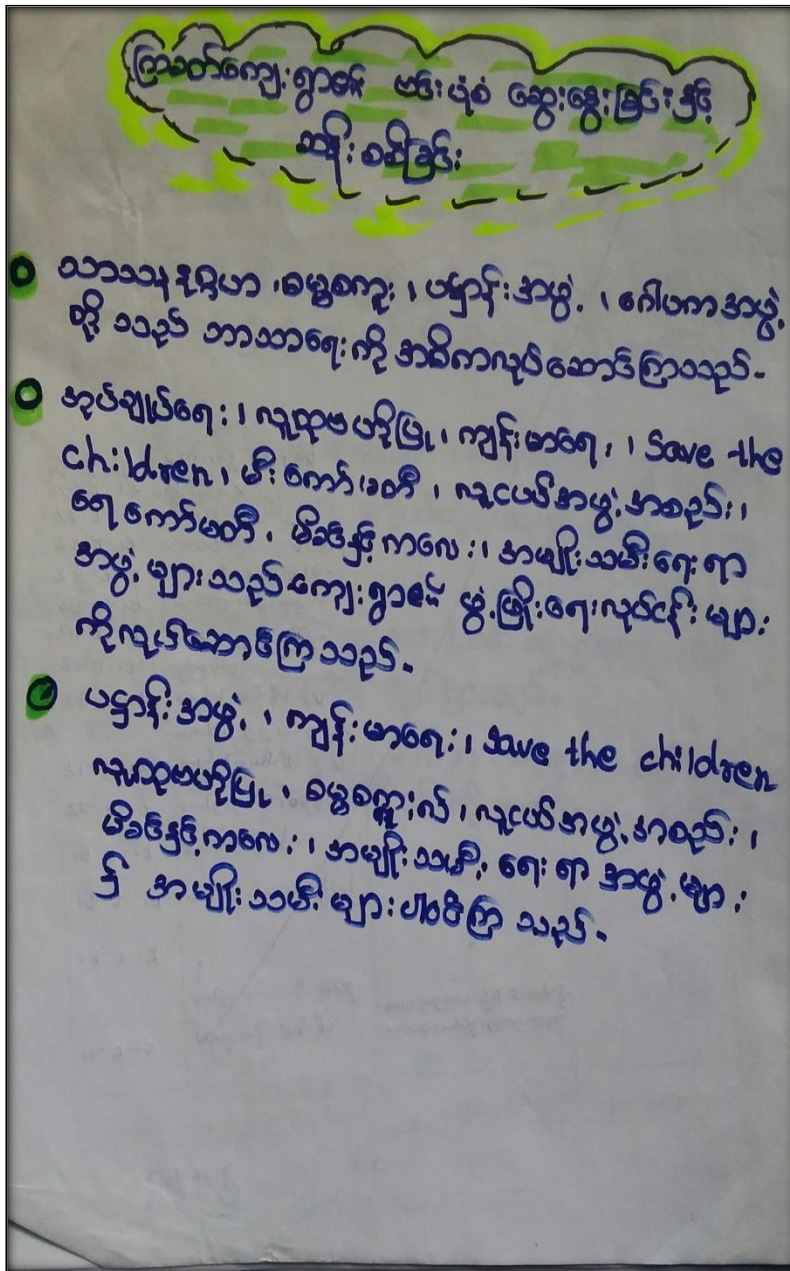 ကြာခတ်ကျေးရွာ၏ ဗင်းပုံစံ ဆွေးနွေးခြင်းနှင့်
ဆန်းစစ်ခြင်း
သာသနနုဂ္ဂဟ၊ ဓမ္မစကူး၊ ပဋ္ဌာန်းအဖွဲ့၊ ဂေါပကအဖွဲ့
တို့ သည် ဘာသာရေးကို အဓိကလုပ်ဆောင်ကြသည်။
အုပ်ချုပ်ရေး၊ လူထုဗဟိုပြု၊ ကျန်းမာရေး၊ Save the
children၊ မီးကော်မတီ၊ လူငယ်အဖွဲ့အစည်း၊
ရေကော်မတီ၊ မိခင်နှင့်ကလေး၊ အမျိုးသမီးရေးရာ
အဖွဲ့များသည် ကျေးရွာ၏ ဖွံ့ဖြိုးရေးလုပ်ငန်းများ
ကိုလုပ်ဆောင်ကြသည်။
ပဋ္ဌာန်းအဖွဲ့၊ ကျန်းမာရေး၊ Save the children
လူထုဗဟိုပြု၊ ဓမ္မစကူးလ်၊ လူငယ်အဖွဲ့အစည်း၊
မိခင်နှင့်ကလေး၊ အမျိုးသမီးရေးရာ အဖွဲ့များ
၌ အမျိုးသမီးများပါဝင်ကြသည်။